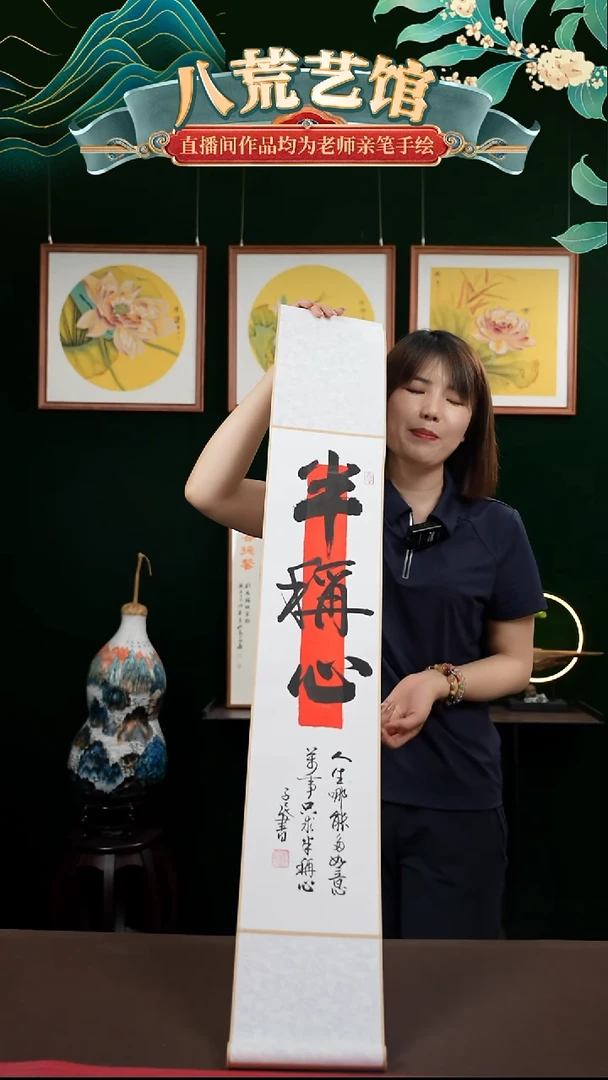 八荒艺馆
直播间作品均为老师亲笔手绘
半稱心
人生哪能多如意
萬事只求半稱心